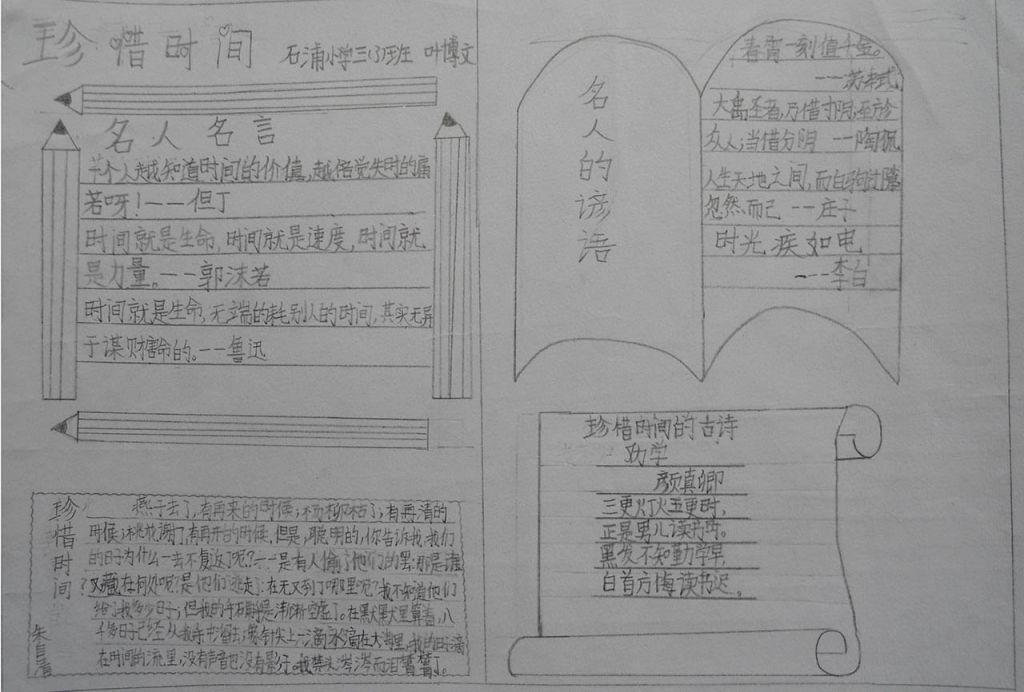 珍惜时间
石浦小学三(3)班 叶博文
名人名言
一个人越知道时间的价值,越倍觉失时的痛
苦呀!——但丁
时间就是生命,时间就是速度,时间就
是力量。——郭沫若
时间就是生命,无端的耗别人的时间,其实无异
于谋财害命的。——鲁迅
名人的谚语
春宵一刻值千金。
---苏轼
大禹圣者,乃惜寸阴,至于
众人,当惜分阴 --陶侃
人生天地之间,而白驹过隙
忽然而已 --庄子
时光疾如电
---李白
珍惜时间
燕子去了,有再来的时候;杨柳枯了,有再清的
时候;桃花谢了,有再开的时候。但是,聪明的,你告诉我,我们
的日子为什么一去不复返了呢?——是有人偷了他们的罢:那是谁
?又藏在何处呢?是他们逃走了:在无又到了哪里呢?我不知道他们
给了我多少日子;但我的手
是渐渐空虚了。在默默里算着,八
千多日子已经从我手
上一滴水滴在大海里,我的日子滴
在时间的流里,没有声音也没有影子。我禁
头涔涔而泪
了。
朱自清
珍惜时间的古诗
劝学
颜真卿
三更灯火五更时,
正是男儿读书时。
黑发不知勤学早,
白首方悔读书迟。